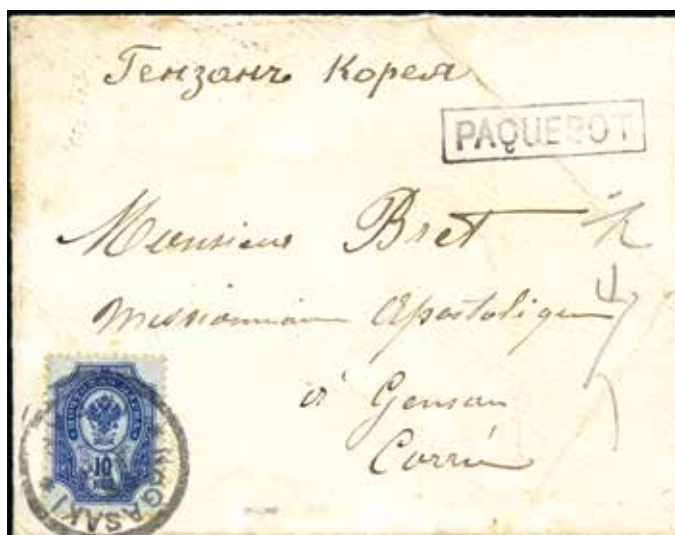 Гензанъ Корея
PAQUEBOT
Monsieur Bret
missionnaire Apostolique
à Gensan
Corée
10
NAGASAKI